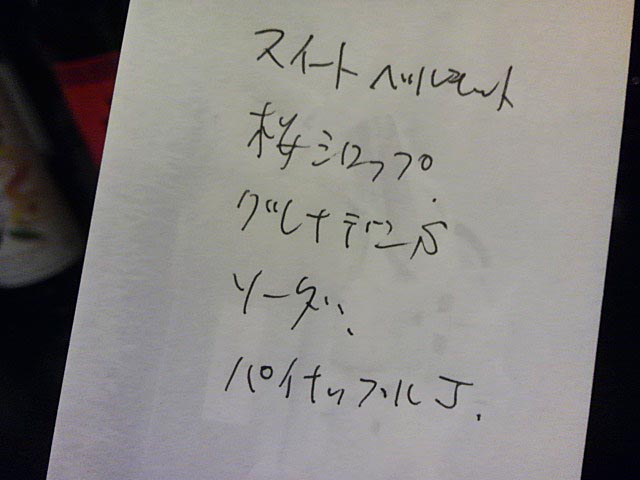 スイート ベルモット
桜シロップ
グレナデンS
ソーダ、
パイナップルJ.